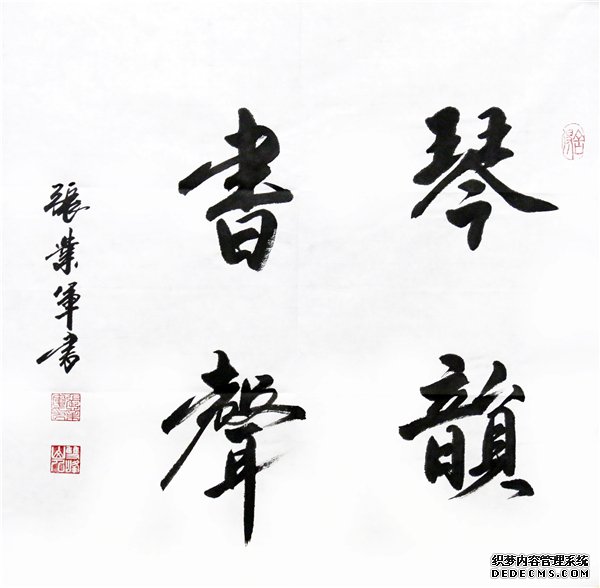 琴韻
書聲
張業軍书
织梦内容管理系统
DEDECMS.COM